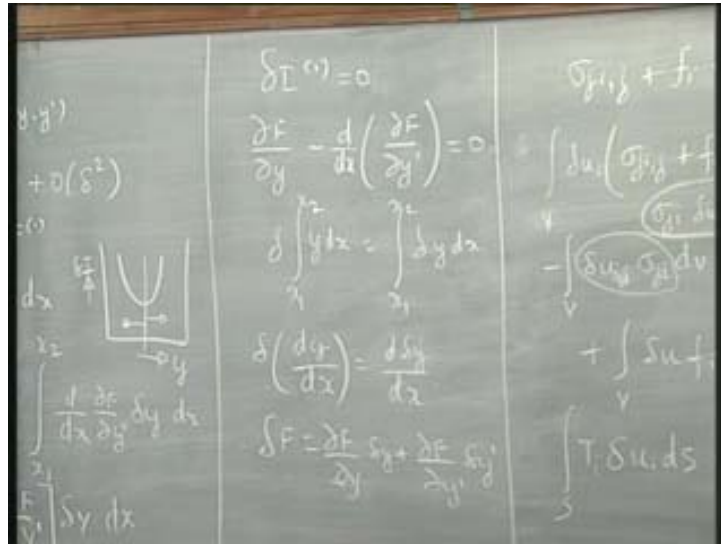 y, y')
+ 0(δ²)
dx
y
∫_{x₁}^{x₂} d/dx ∂F/∂y' δy dx
] δy dx
δI⁽¹⁾ = 0
∂F/∂y - d/dx (∂F/∂y') = 0
δ ∫_{x₁}^{x₂} y dx = ∫_{x₁}^{x₂} δy dx
δ(dy/dx) = dδy/dx
δF = ∂F/∂y δy + ∂F/∂y' δy'
σ_{ji,j} + f_i
∫_V δu_i (σ_{ji,j} + f
σ_{ji} δu
- ∫_V δu_{i,j} σ_{ji} dv
+ ∫_V δu f
∫_S T_i δu_i ds